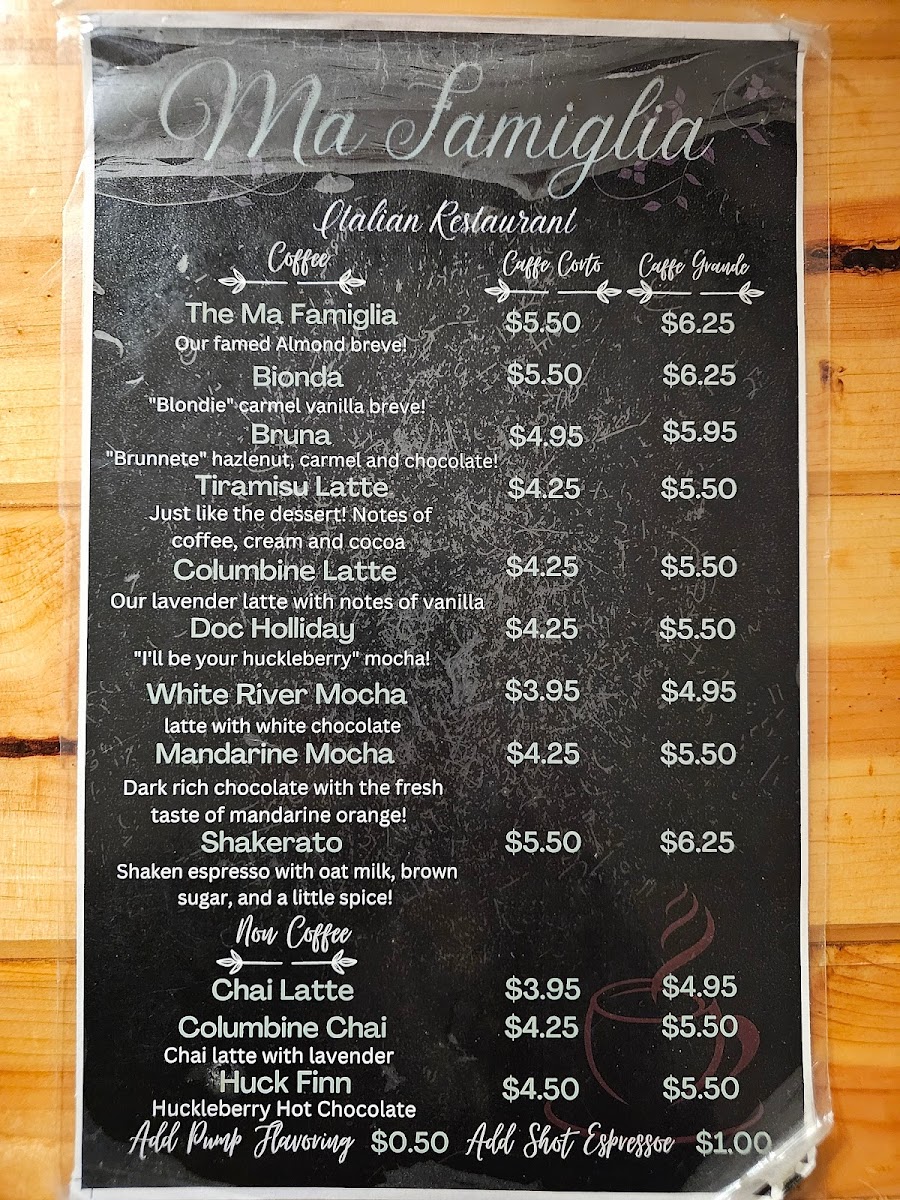 Ma Famiglia
Italian Restaurant
Coffee Caffe Corto Caffe Grande
The Ma Famiglia $5.50 $6.25
Our famed Almond breve!
Bionda $5.50 $6.25
"Blondie" carmel vanilla breve!
Bruna $4.95 $5.95
"Brunnete" hazlenut, carmel and chocolate!
Tiramisu Latte $4.25 $5.50
Just like the dessert! Notes of
coffee, cream and cocoa
Columbine Latte $4.25 $5.50
Our lavender latte with notes of vanilla
Doc Holliday $4.25 $5.50
"I'll be your huckleberry" mocha!
White River Mocha $3.95 $4.95
latte with white chocolate
Mandarine Mocha $4.25 $5.50
Dark rich chocolate with the fresh
taste of mandarine orange!
Shakerato $5.50 $6.25
Shaken espresso with oat milk, brown
sugar, and a little spice!
Non Coffee
Chai Latte $3.95 $4.95
Columbine Chai $4.25 $5.50
Chai latte with lavender
Huck Finn $4.50 $5.50
Huckleberry Hot Chocolate
Add Pump Flavoring $0.50 Add Shot Espressoe $1.00